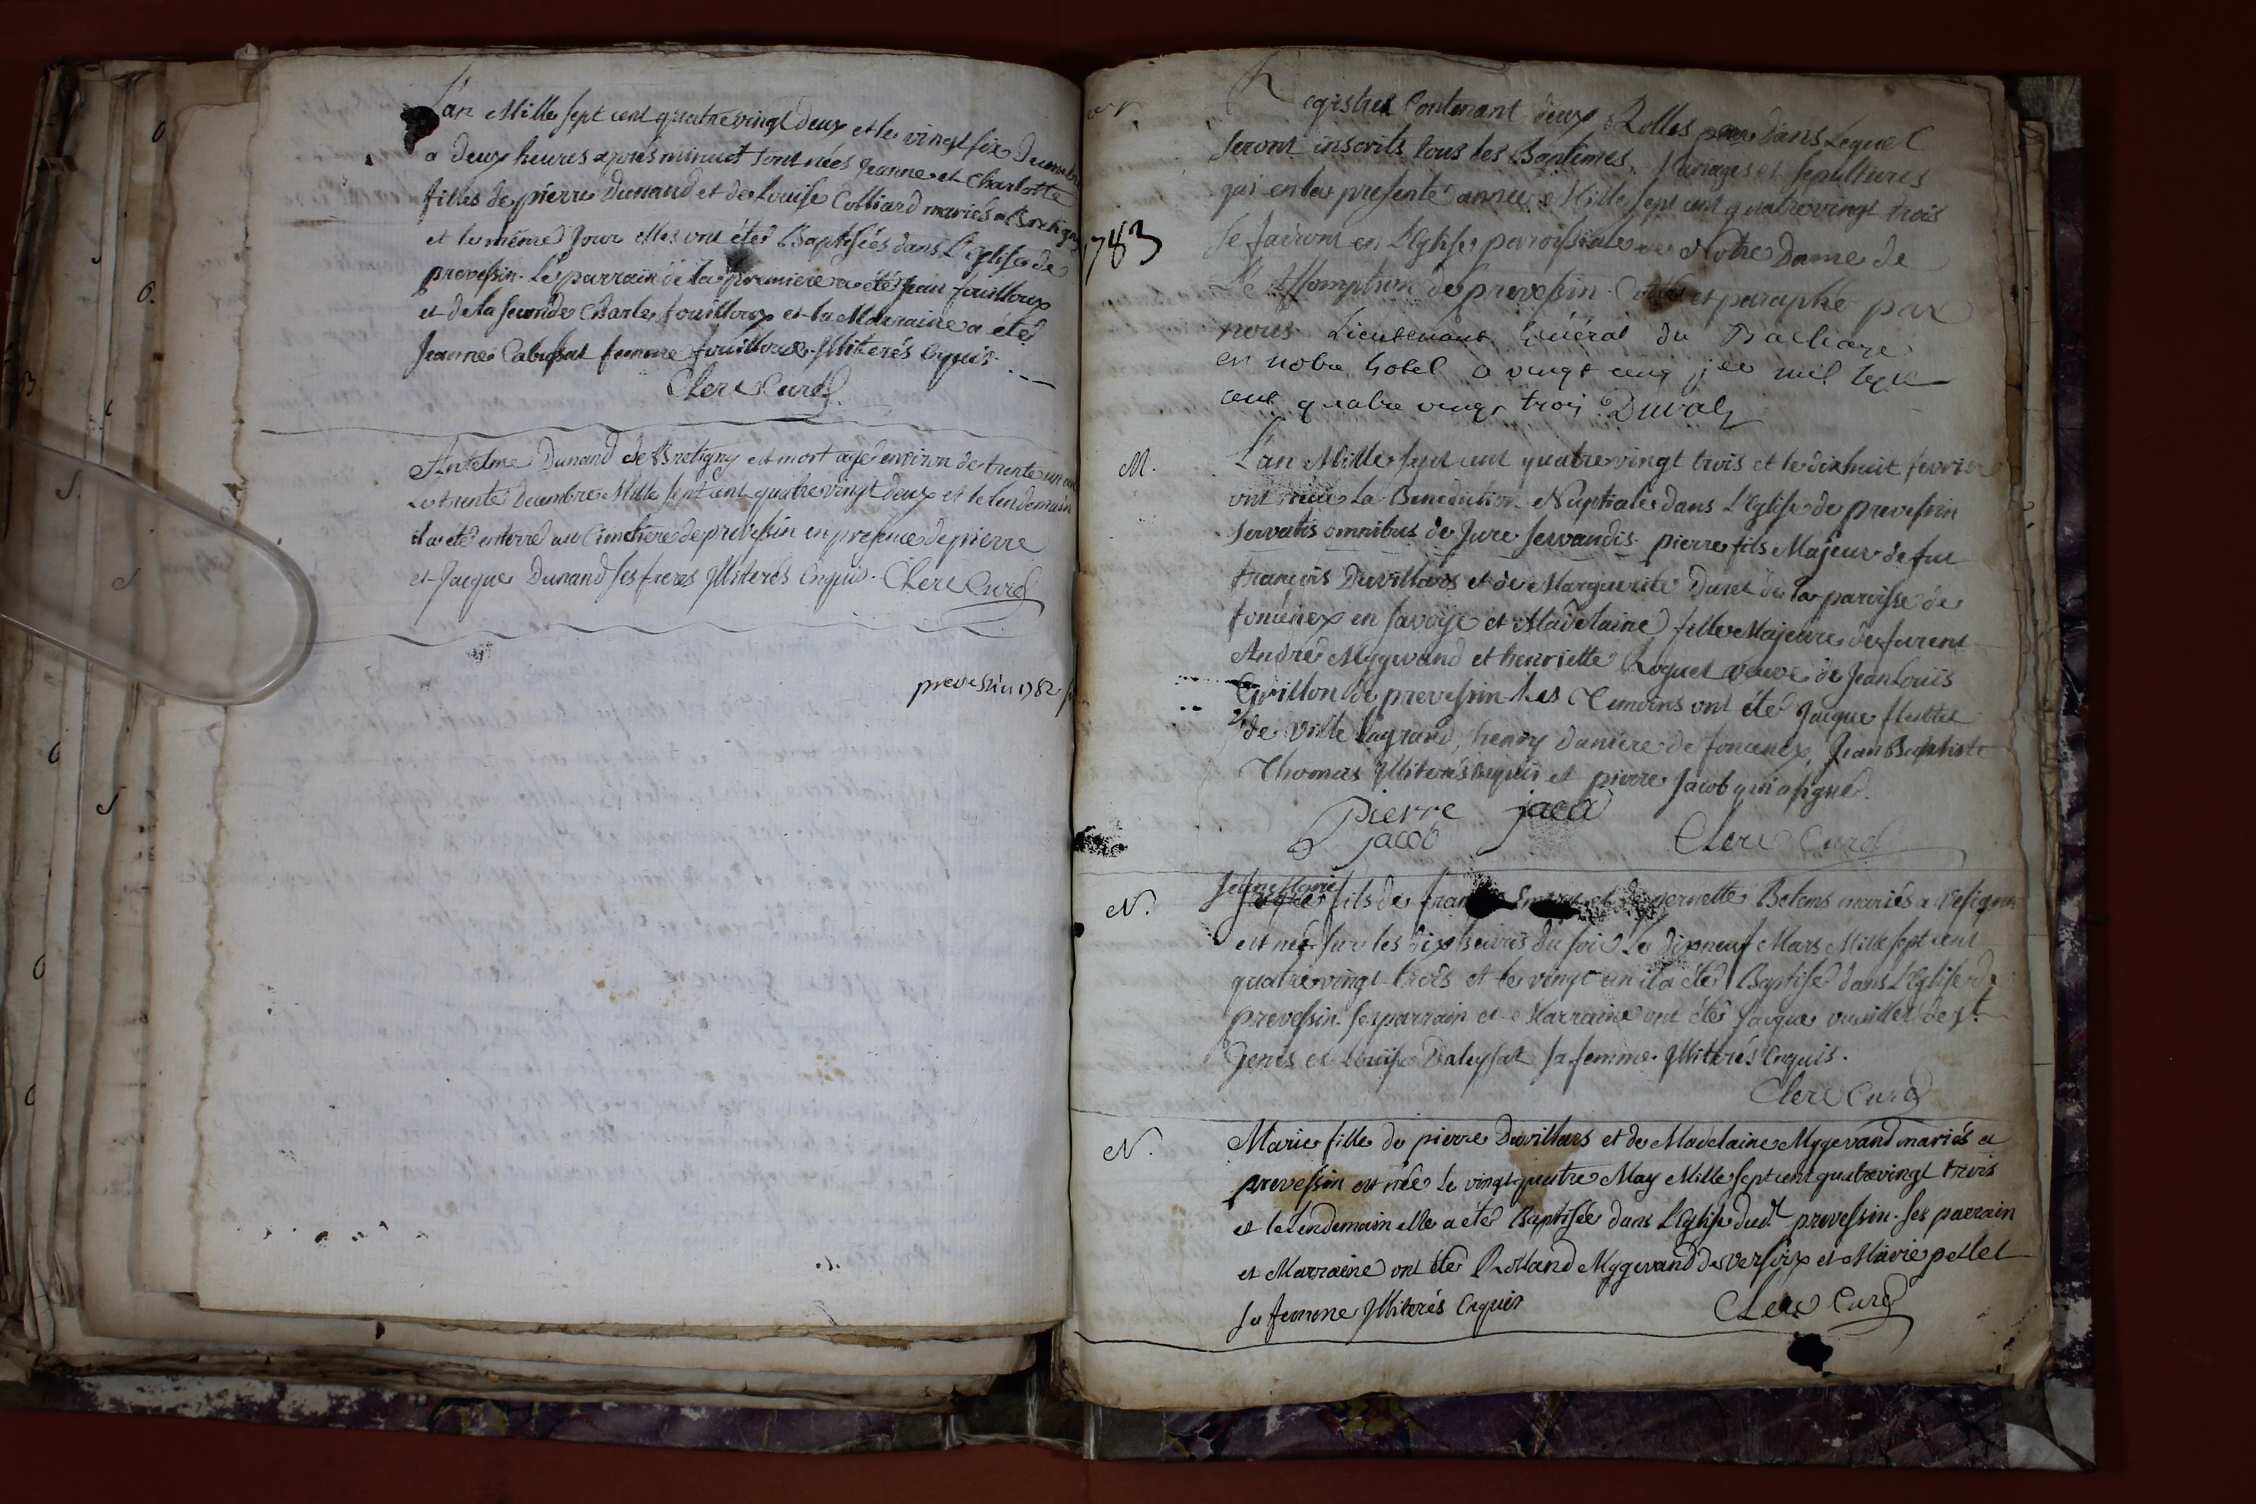 L'an Mille sept cent quatrevingt deux et le vingt six Decembre
a deux heures apres minuit sont nées Jeanne et Charlotte
filles de pierre Dunand et de Louise Colliard mariés a Bretigny
et le même Jour elles ont été Baptisées dans L'eglise de
prevessin. Le parrain de la premiere a été Jean fouilloux
et de la seconde Charle fouilloux et la Marraine a été
Jeanne femme fouilloux. Illiterés Enquis.
Clerc Curé
Antelme Dunand de Bretigny est mort agé environ de trente un ans
Le trente Decembre Mille sept cent quatre vingt deux et le lendemain
il a été enterré au Cimetiere de prevessin en presence de pierre
et Jacque Dunand ses freres Illiterés Enquis. Clerc Curé
prevessin 1782
Registre Contenant deux Rolles dans Lequel
seront inscrits tous les Baptêmes, Mariages et sepultures
qui en la presente année Mille sept cent quatrevingt trois
1783
se fairont en L'Eglise paroissiale de Notre Dame de
L'Assomption de prevessin. Cotté et paraphé par
nous Lieutenant Général du Bailiage
en notre hotel a vingt cinq jer mil sept
cent quatre vingt trois Duval
M.
L'an Mille sept cent quatrevingt trois et le dixhuit fevrier
ont reçu La Benediction Nuptiale dans L'Eglise de prevessin
servatis omnibus de Jure servandis pierre fils Majeur de fut
françois Duvillars et de Marguerite Duret de la paroisse de
foncenex en savoÿe et Madelaine fille Majeure de furent
André Mygevand et henriette Roquet veuve de Jean Louis
Grillon de prevessin. Les Temoins ont été Jacque
de ville la grand, henry daniere de foncenex, Jean Baptiste
Thomas Illiterés Enquis et pierre Jacob qui a signé.
pierre
jacob
Clerc Curé
N.
Jean Marie
fils de et de pernette Betems mariés a Vesegnin
est né sur les dix heures du soir Le dixneuf Mars Mille sept cent
quatrevingt trois et le vingt un il a été Baptisé dans L'Eglise de
prevessin. Ses parrain et Marraine ont été Jacque vuaillet de st
Genis et Louise Daleysat sa femme. Illiterés Enquis.
Clerc Curé
N.
Marie fille de pierre Duvillars et de Madelaine Mygevand mariés a
prevessin est née Le vingt quatre May Mille sept cent quatrevingt trois
et le Lendemain elle a été Baptisée dans L'Eglise dud.t prevessin. Ses parrain
et Marraine ont été Rolland Mygevand de versoix et Marie pellet
sa femme Illiterés Enquis
Clerc Curé